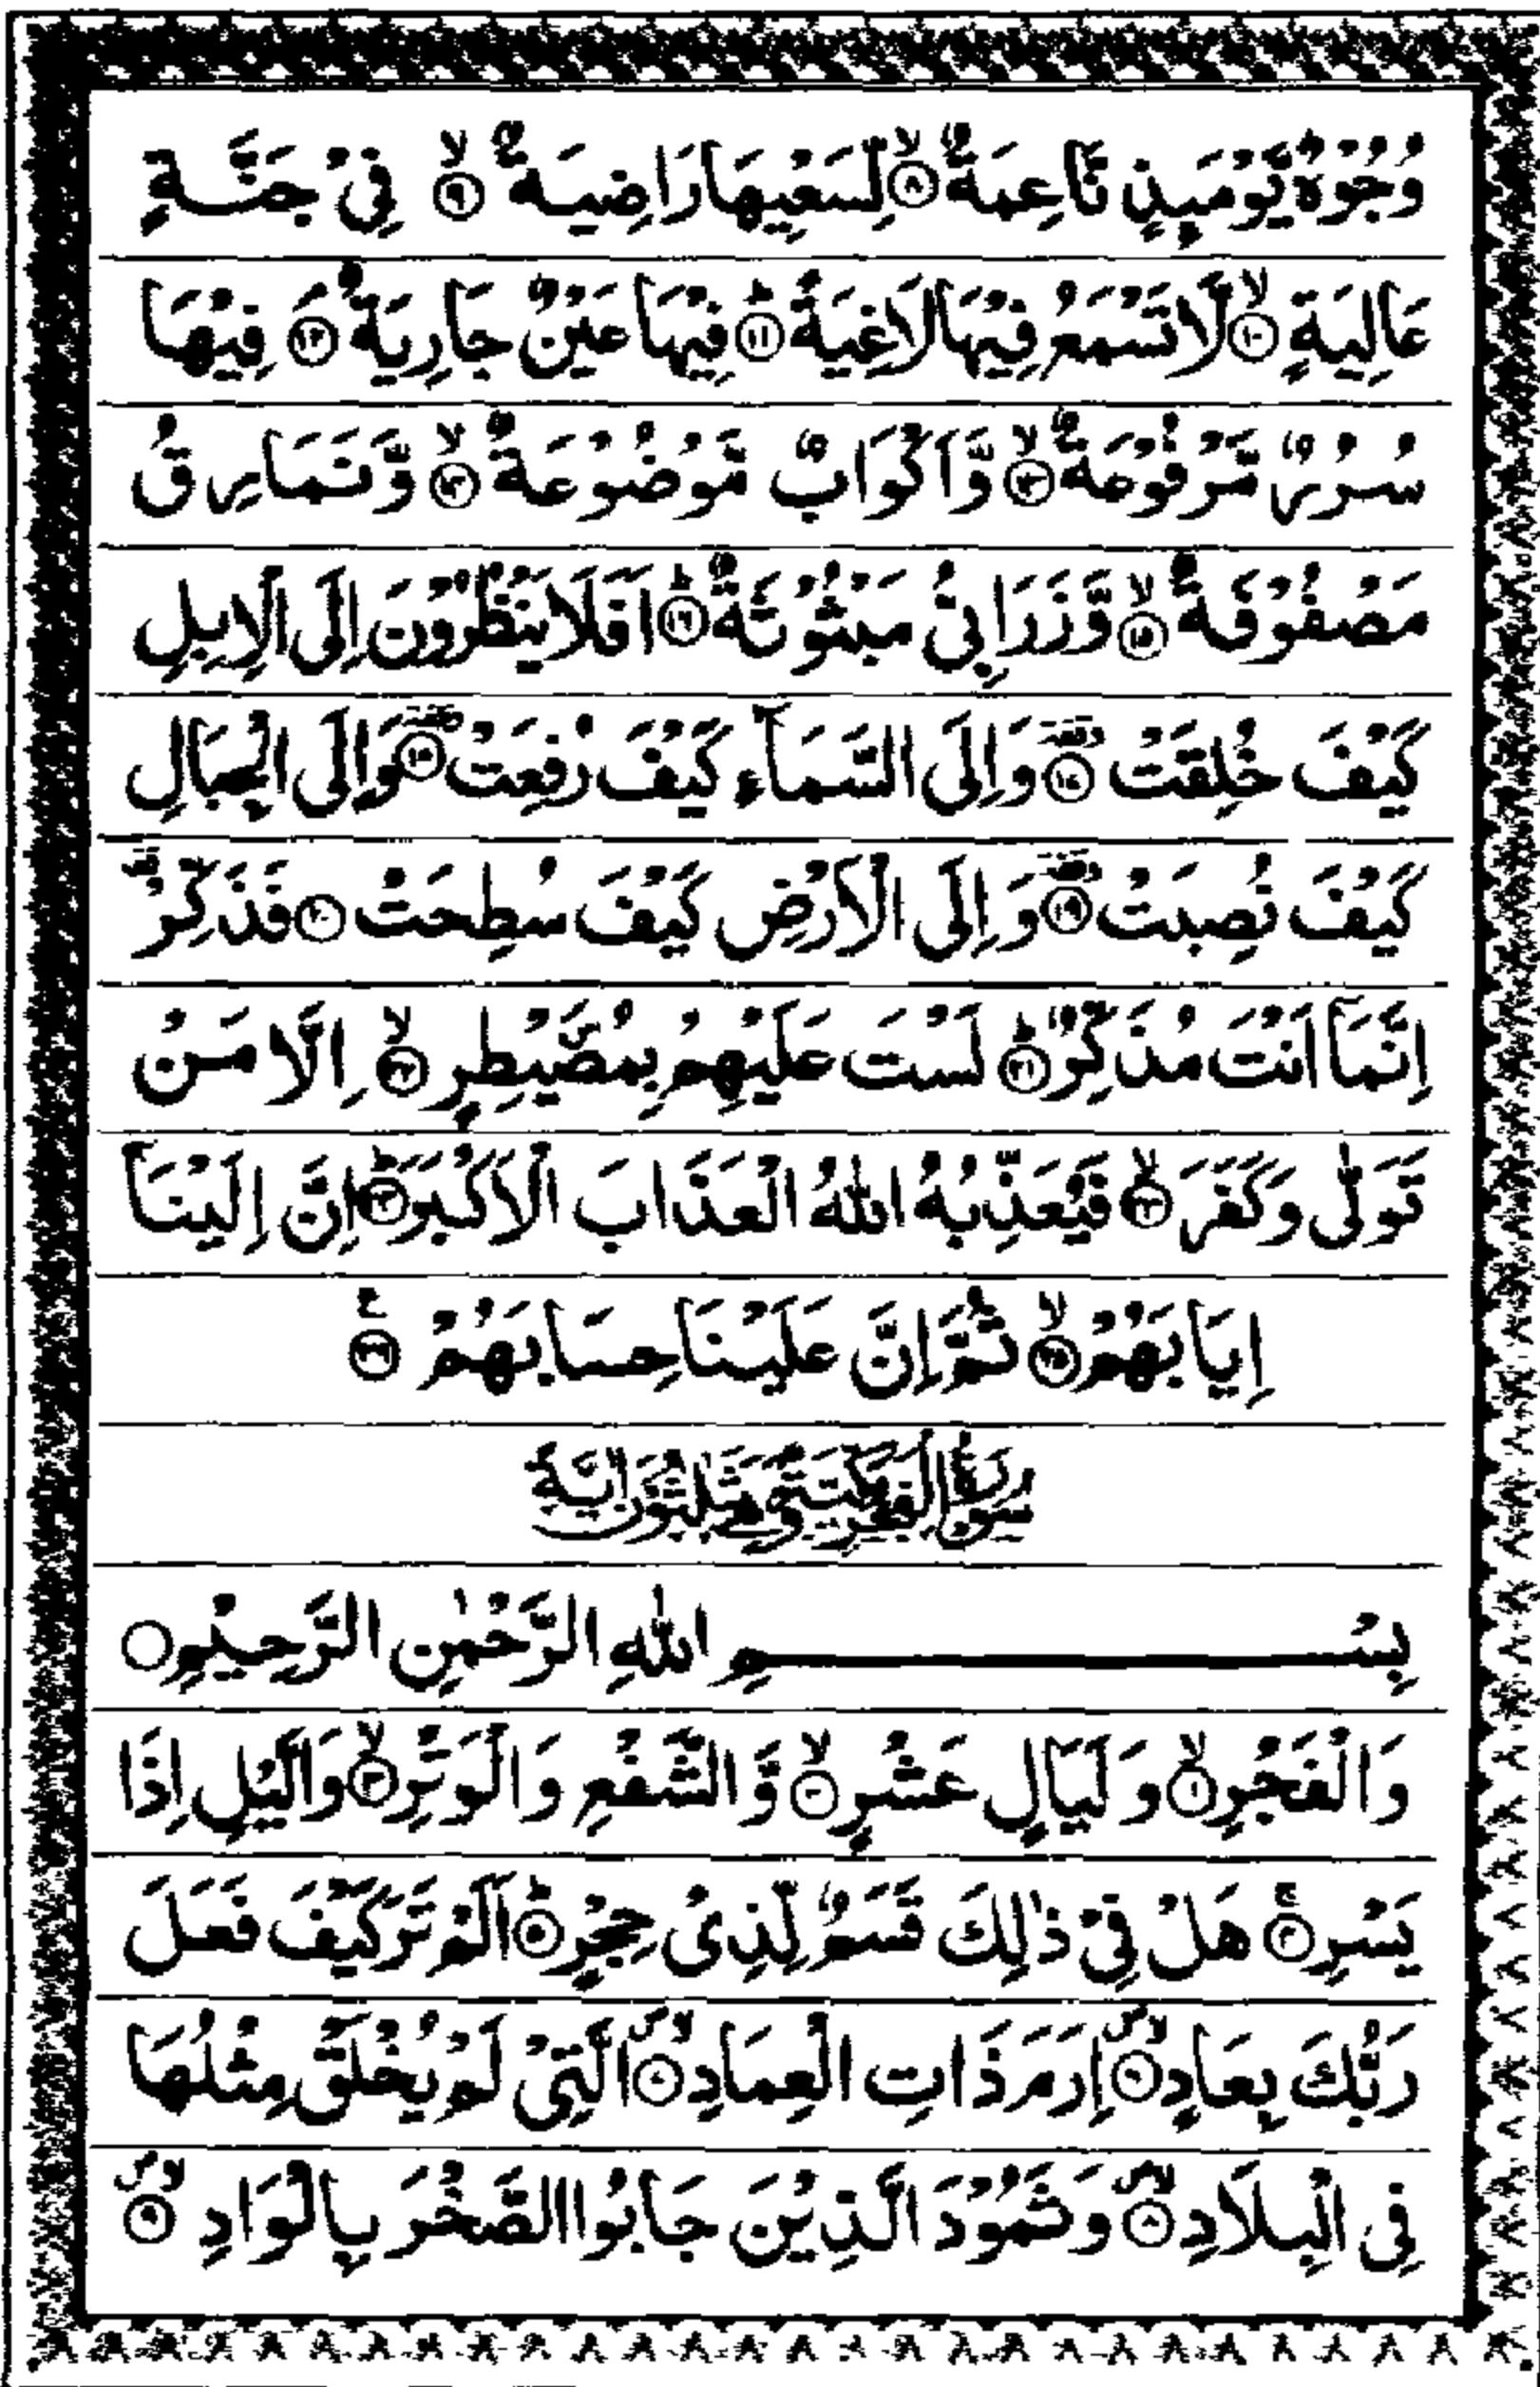 وُجُوْهٌ يَّوْمَىِٕذٍ نَّاعِمَةٌ ۙ‏﴿۸﴾ لِّسَعْيِهَا رَاضِيَةٌ ۙ‏﴿۹﴾ فِيْ جَنَّةٍ
عَالِيَةٍ ۙ‏﴿۱۰﴾ لَّا تَسْمَعُ فِيْهَا لَاغِيَةً ؕ‏﴿۱۱﴾ فِيْهَا عَيْنٌ جَارِيَةٌ ۘ‏﴿۱۲﴾ فِيْهَا
سُرُرٌ مَّرْفُوْعَةٌ ۙ‏﴿۱۳﴾ وَّاَكْوَابٌ مَّوْضُوْعَةٌ ۙ‏﴿۱۴﴾ وَّنَمَارِقُ
مَصْفُوْفَةٌ ۙ‏﴿۱۵﴾ وَّزَرَابِيُّ مَبْثُوْثَةٌ ؕ‏﴿۱۶﴾ اَفَلَا يَنْظُرُوْنَ اِلَى الْاِبِلِ
كَيْفَ خُلِقَتْ ﴿۱۷﴾ وَاِلَى السَّمَآءِ كَيْفَ رُفِعَتْ ﴿۱۸﴾ وَاِلَى الْجِبَالِ
كَيْفَ نُصِبَتْ ﴿۱۹﴾ وَاِلَى الْاَرْضِ كَيْفَ سُطِحَتْ ﴿۲۰﴾ فَذَكِّرْ
اِنَّمَاۤ اَنْتَ مُذَكِّرٌ ؕ‏﴿۲۱﴾ لَسْتَ عَلَيْهِمْ بِمُصَۜيْطِرٍ ۙ‏﴿۲۲﴾ اِلَّا مَنْ
تَوَلّٰى وَكَفَرَ ۙ‏﴿۲۳﴾ فَيُعَذِّبُهُ اللّٰهُ الْعَذَابَ الْاَكْبَرَ ؕ‏﴿۲۴﴾ اِنَّ اِلَيْنَاۤ
اِيَابَهُمْ ۙ‏﴿۲۵﴾ ثُمَّ اِنَّ عَلَيْنَا حِسَابَهُمْ ﴿۲۶﴾ ع
سُوْرَةُ الْفَجْرِ مَكِّيَّةٌ وَّهِيَ ثَلٰثُوْنَ اٰيَةً
بِسْمِ اللّٰهِ الرَّحْمٰنِ الرَّحِيْمِ ○
وَالْفَجْرِ ۙ‏﴿۱﴾ وَلَيَالٍ عَشْرٍ ۙ‏﴿۲﴾ وَّالشَّفْعِ وَالْوَتْرِ ۙ‏﴿۳﴾ وَالَّيْلِ اِذَا
يَسْرِ ۚ‏﴿۴﴾ هَلْ فِيْ ذٰلِكَ قَسَمٌ لِّذِيْ حِجْرٍ ؕ‏﴿۵﴾ اَلَمْ تَرَ كَيْفَ فَعَلَ
رَبُّكَ بِعَادٍ ﴿۶﴾ اِرَمَ ذَاتِ الْعِمَادِ ﴿۷﴾ الَّتِيْ لَمْ يُخْلَقْ مِثْلُهَا
فِي الْبِلَادِ ﴿۸﴾ وَثَمُوْدَ الَّذِيْنَ جَابُوا الصَّخْرَ بِالْوَادِ ﴿۹﴾